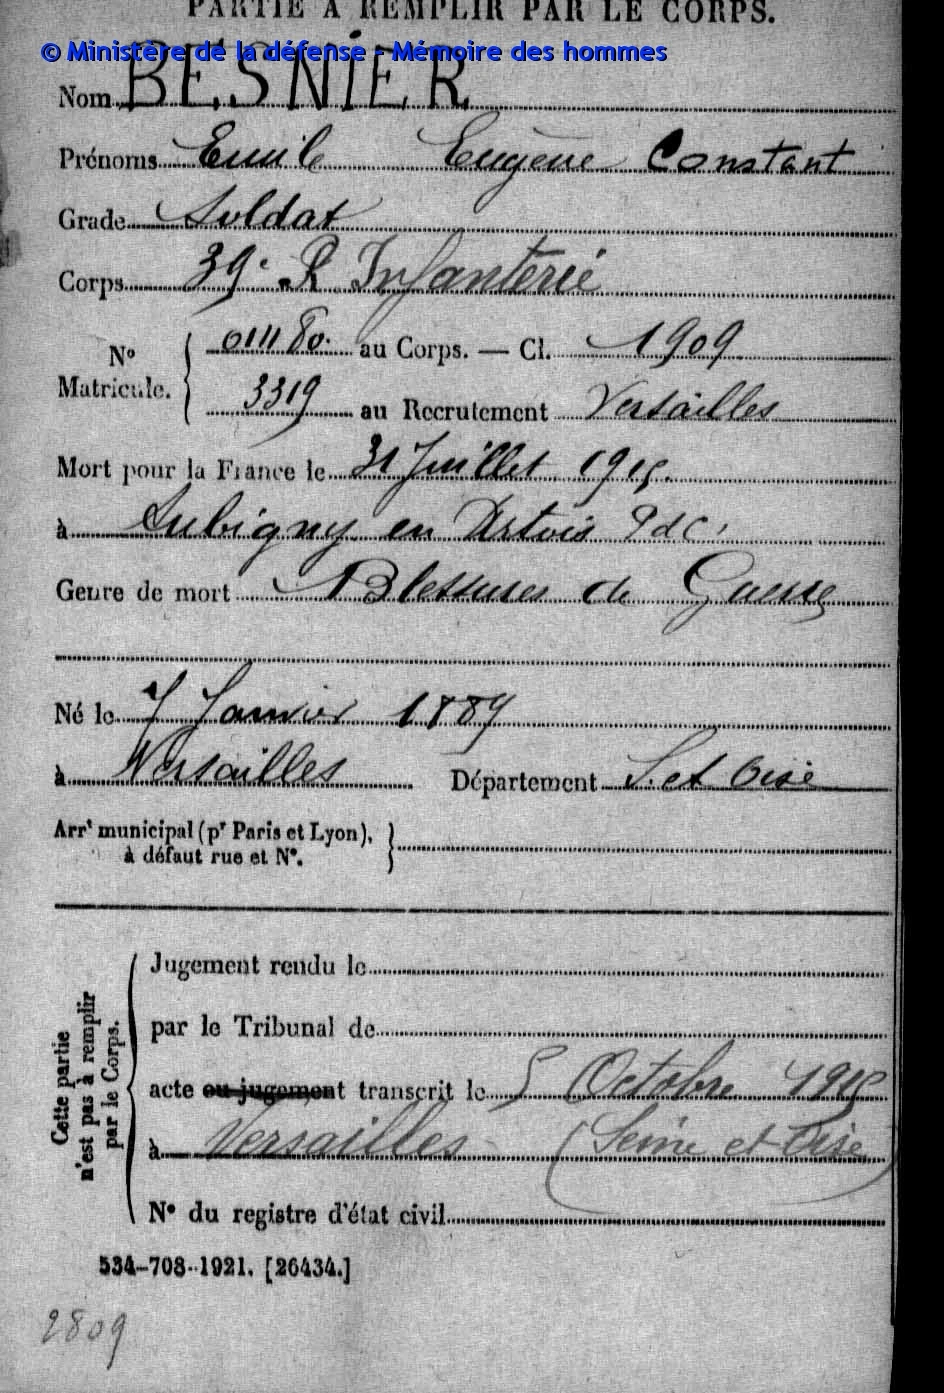 PARTIE À REMPLIR PAR LE CORPS.
© Ministère de la défense - Mémoire des hommes
Nom BESNIER
Prénoms Emile Eugène Constant
Grade Soldat
Corps 39e R Infanterie
N° Matricule. { 011180. au Corps. — Cl. 1909
3319 au Recrutement Versailles
Mort pour la France le 31 Juillet 1915.
à Aubigny en Artois PdC.
Genre de mort Blessures de Guerre
Né le 7 Janvier 1889
à Versailles Département S. et Oise
Arrt municipal (pr Paris et Lyon), }
à défaut rue et N°.
Cette partie n'est pas à remplir par le Corps.
Jugement rendu le
par le Tribunal de
acte ou jugement transcrit le 5 Octobre 1915
à Versailles (Seine et Oise)
N° du registre d'état civil
534-708-1921. [26434.]
2809